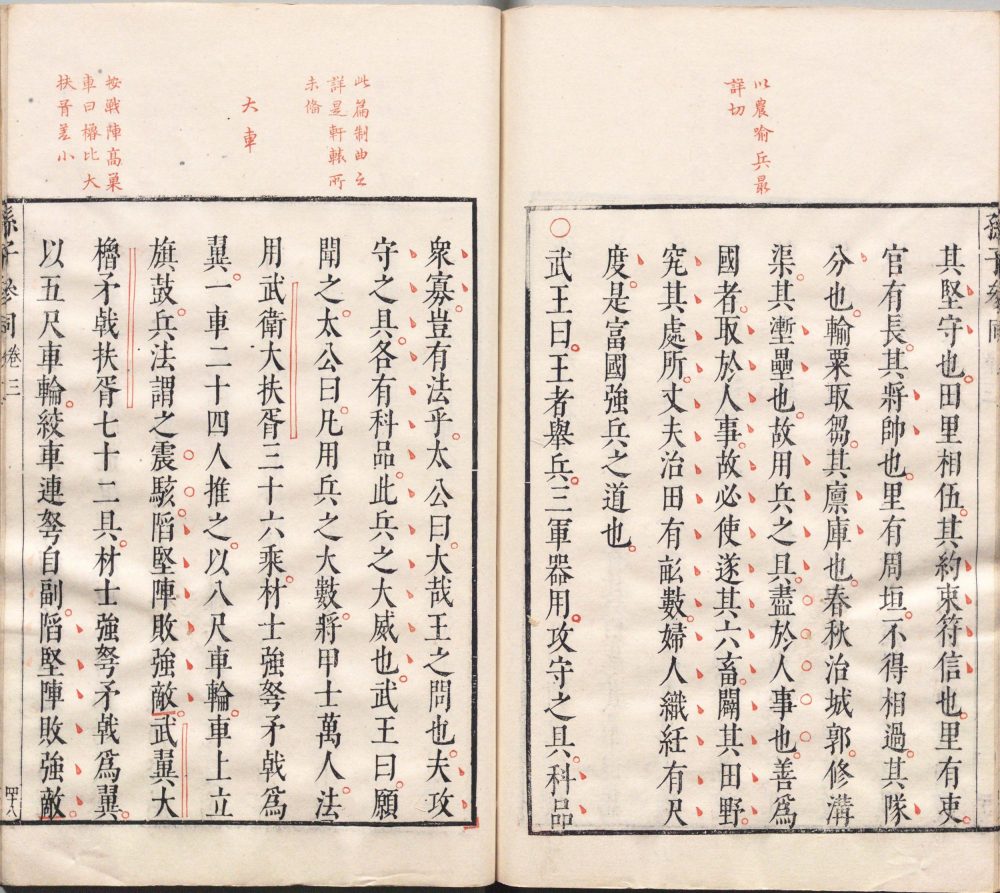 以農喻兵最
詳切
其堅守也田里相伍其約束符信也里有吏
官有長其將帥也里有周垣不得相過其隊
分也輸粟取芻其廩庫也春秋治城郭修溝
渠其塹壘也故用兵之具盡於人事也善爲
國者取於人事故必使遂其六畜闢其田野
究其處所丈夫治田有畝數婦人織紝有尺
度是富國強兵之道也
武王曰王者舉兵三軍器用攻守之具科品
此篇制曲之
詳是軒轅所
未備
大車
按戰陣高巢
車曰櫓比大
扶胥差小
衆寡豈有法乎太公曰大哉王之問也夫攻
守之具各有科品此兵之大威也武王曰願
聞之太公曰凡用兵之大數將甲士萬人法
用武衛大扶胥三十六乘材士強弩矛戟爲
翼一車二十四人推之以八尺車輪車上立
旗鼓兵法謂之震駭陷堅陣敗強敵武翼大
櫓矛戟扶胥七十二具材士強弩矛戟爲翼
以五尺車輪絞車連弩自副陷堅陣敗強敵
孫子參同 卷三
四十八